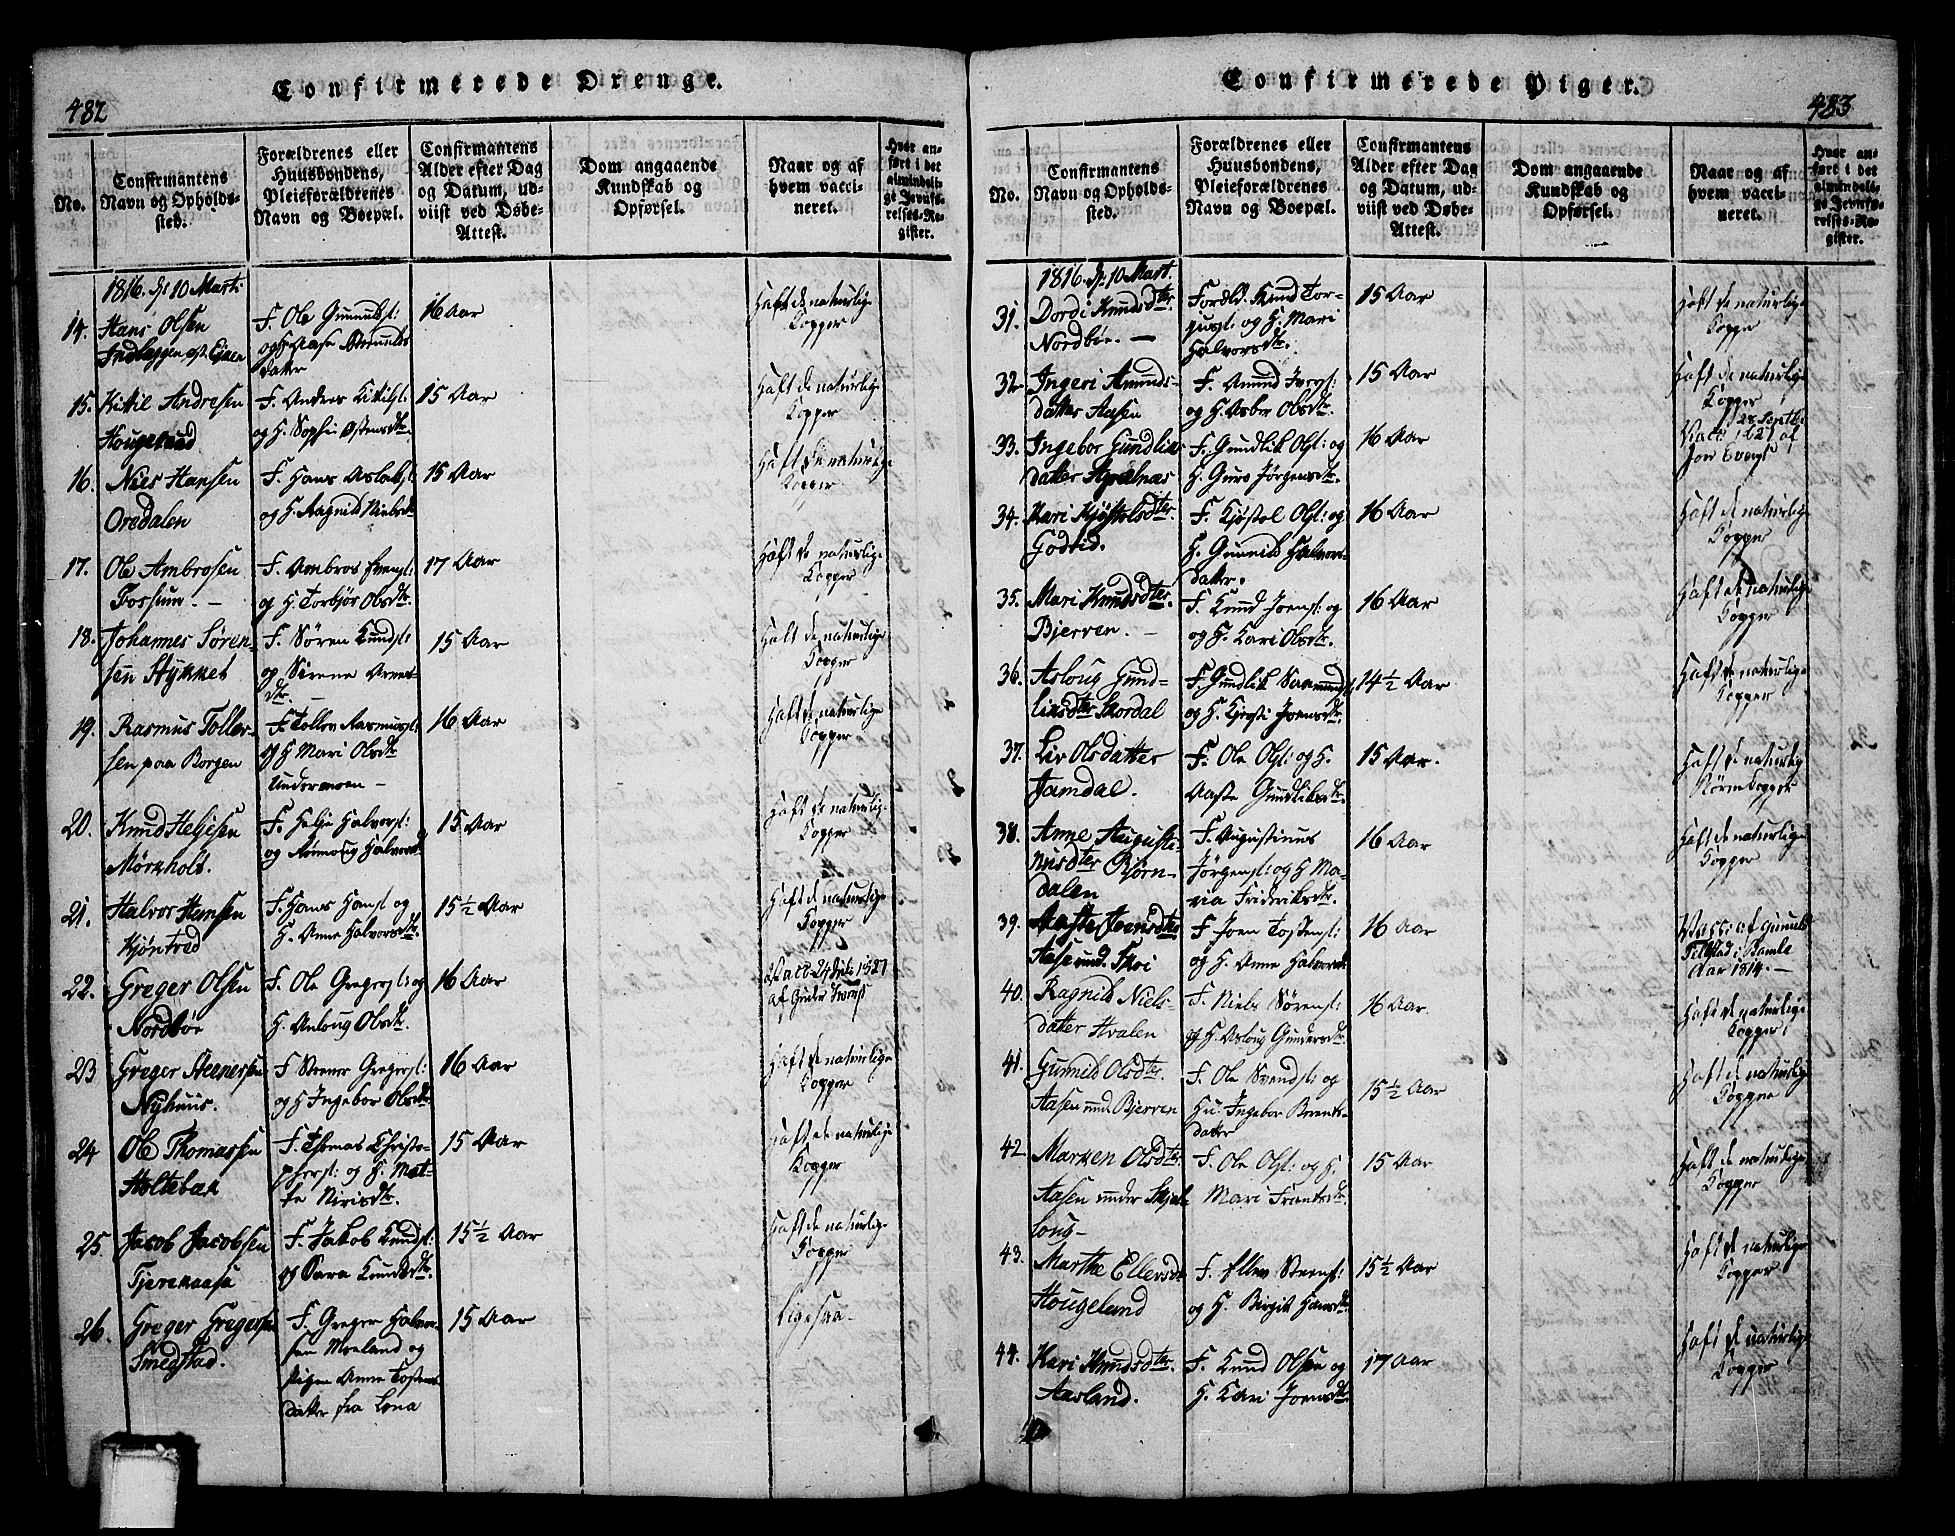 482
Confirmerede Drenge.
No.
Confirmantens
Navn og Opholds-
sted.
Forældrenes eller
Huusbondens,
Pleieforældrenes
Navn og Boepæl.
Confirmantens
Alder efter Dag
og Datum, ud-
viist ved Døbe-
Attest.
Dom angaaende
Kundskab og
Opførsel.
Naar og af
hvem vacci-
neret.
Hvor an-
ført i det
almindeli-
ge Jevnfø-
relses-Re-
gister.
1816. d: 10 Marti
14.
Hans Olsen
F. Ole Gunnulfs:
16 Aar
Haft de naturlige
Kopper
datter
15.
Kittil Andresen
Hougelund
F. Anders Kittils:
og H. Sophie Ostensdtr.
15 Aar
Haft de naturlige
Kopper
16.
Niels Hansen
Oredalen
F. Hans Aslaks:
og H. Ragnild Nielsdtr
15 Aar
Haft de naturlige
Kopper
17.
Ole Ambrosen
Fossum. -
F. Ambros Svens:
og H. Torbjør Olsdtr.
17 Aar
Haft de naturlige
Kopper
18.
Johannes Søren-
sen Stykket
F. Søren Knuds:
og Sirene Arnes-
dtr.
15 Aar
Haft de naturlige
Kopper
19.
Rasmus Toller-
sen paa Borgen
F. Tollev Rasmuss:
og H Mari Olsdtr
16 Aar
Haft de naturlige
Kopper
20.
Knud Heljesen
Mørkholt.
F. Helje Halvors:
15 Aar
Haft de naturlige
Kopper
21.
Halvor Hansen
Kjøntved
F. Hans Hans: og
H. Anne Halvorsdtr.
15½ Aar
Haft de naturlige
Kopper
22.
Greger Olsen
Nordbøe
F. Ole Gregers: og
H. Anloug Olsdtr.
16 Aar
23
Greger Steenersen
Nyhuus.
F Steener Gregers:
og H Ingebor Olsdtr
16 Aar
Haft de naturlige
Kopper
24
Ole Thomassen
Holtebak
F. Thomas Christo-
phers: og H. Met-
te
15 Aar
Haft de naturlige
Kopper
25
Jacob Jacobsen
Tjerenaasa
F. Jakob Knuds:
og Sara Knudsdtr.
15½ Aar
Haft de naturlige
Kopper
26.
Greger Gregersen
Smedstad.
F. Greger Halvor-
sen Moeland og
Pigen Anne Tostens-
datter fra Lona
15 Aar
Ligesaa.
483
Confirmerede Piger.
No.
Confirmantens
Navn og Opholds-
sted.
Forældrenes eller
Huusbondens,
Pleieforældrenes
Navn og Boepæl.
Confirmantens
Alder efter Dag
og Datum, ud-
viist ved Døbe-
Attest.
Dom angaaende
Kundskab og
Opførsel.
Naar og af
hvem vacci-
neret.
Hvor an-
ført i det
almindeli-
ge Jevnfø-
relses-Re-
gister.
1816. d: 10 Mart.
31.
Dordi Knudsdter.
Nordbøe. —
Foreld. Knud Tor-
jus: og H. Mari
Halvorsdtr.
15 Aar
Haft de naturlige
Kopper
32.
Ingeri Amunds-
datter Aasen
F. Amund Ivers:
og H. Asber Olsdtr.
15 Aar
Haft de naturlige
Kopper
33.
Ingebor Gundliks-
datter
F. Gundlik Ols: og
H. Guro Jørgensdtr.
16 Aar
34.
Kari Kjøstolsdter.
Godtid.
F. Kjøstol Ols: og
H. Gunnild Halvors-
datter.
16 Aar
Haft de naturlige
Kopper
35.
Mari Knudsdter.
Bjerven. -
F. Knud Joens: og
og H. Kari Olsdtr.
16 Aar
Haft de naturlige
Kopper
36.
Asloug Gund-
liksdter Skordal
F. Gundlik Saamunds:
og H. Kjersti Joensdtr.
14½ Aar
Haft de naturlige
Kopper
37.
Liv Olsdatter
Jamdal.
F. Ole Ols: og H.
Aaste Gundliksdtr.
15 Aar.
Haft de naturlig
38.
Anne Auguste-
nusdter Bjørn-
dalen
F. Augustinus
Jørgens: og H Ma-
ria Fridriksdtr.
16 Aar
Haft de naturlige
Kopper
39.
Aaste Joensdter
F Joen Tostens:
og H. Anne Halvorsdtr
16 Aar
Vacc: af Gunuld
Tilstad i Bamle
Aar 1814. —
40.
Ragnild Niels-
datter Hvalen
F. Niels Sørens:
og H. Asloug Gundersdtr.
16 Aar.
Haft de naturlige
Kopper
41.
Gunnild Olsdter.
Aasen und. Bjerven
F. Ole Svends: og
Hu. Ingebor Brents-
datter
15½ Aar
Haft de naturlige
Kopper
42.
Marken Olsdter.
Aasen under Skjel-
long-
F. Ole Ols: og H.
Mari Frantsdtr.
15 Aar
Haft de naturlige
Kopper
43.
Marthe Ellersdtr
Hougelund
F. Ellev Steens:
og H. Birgit Hansdtr.
15½ Aar
Haft de naturlige
Kopper
44.
Kari Knudsdter.
Aasland.
F. Knud Olsen og
H. Kari Joensdtr.
17 Aar
Haft de naturlige
Kopper